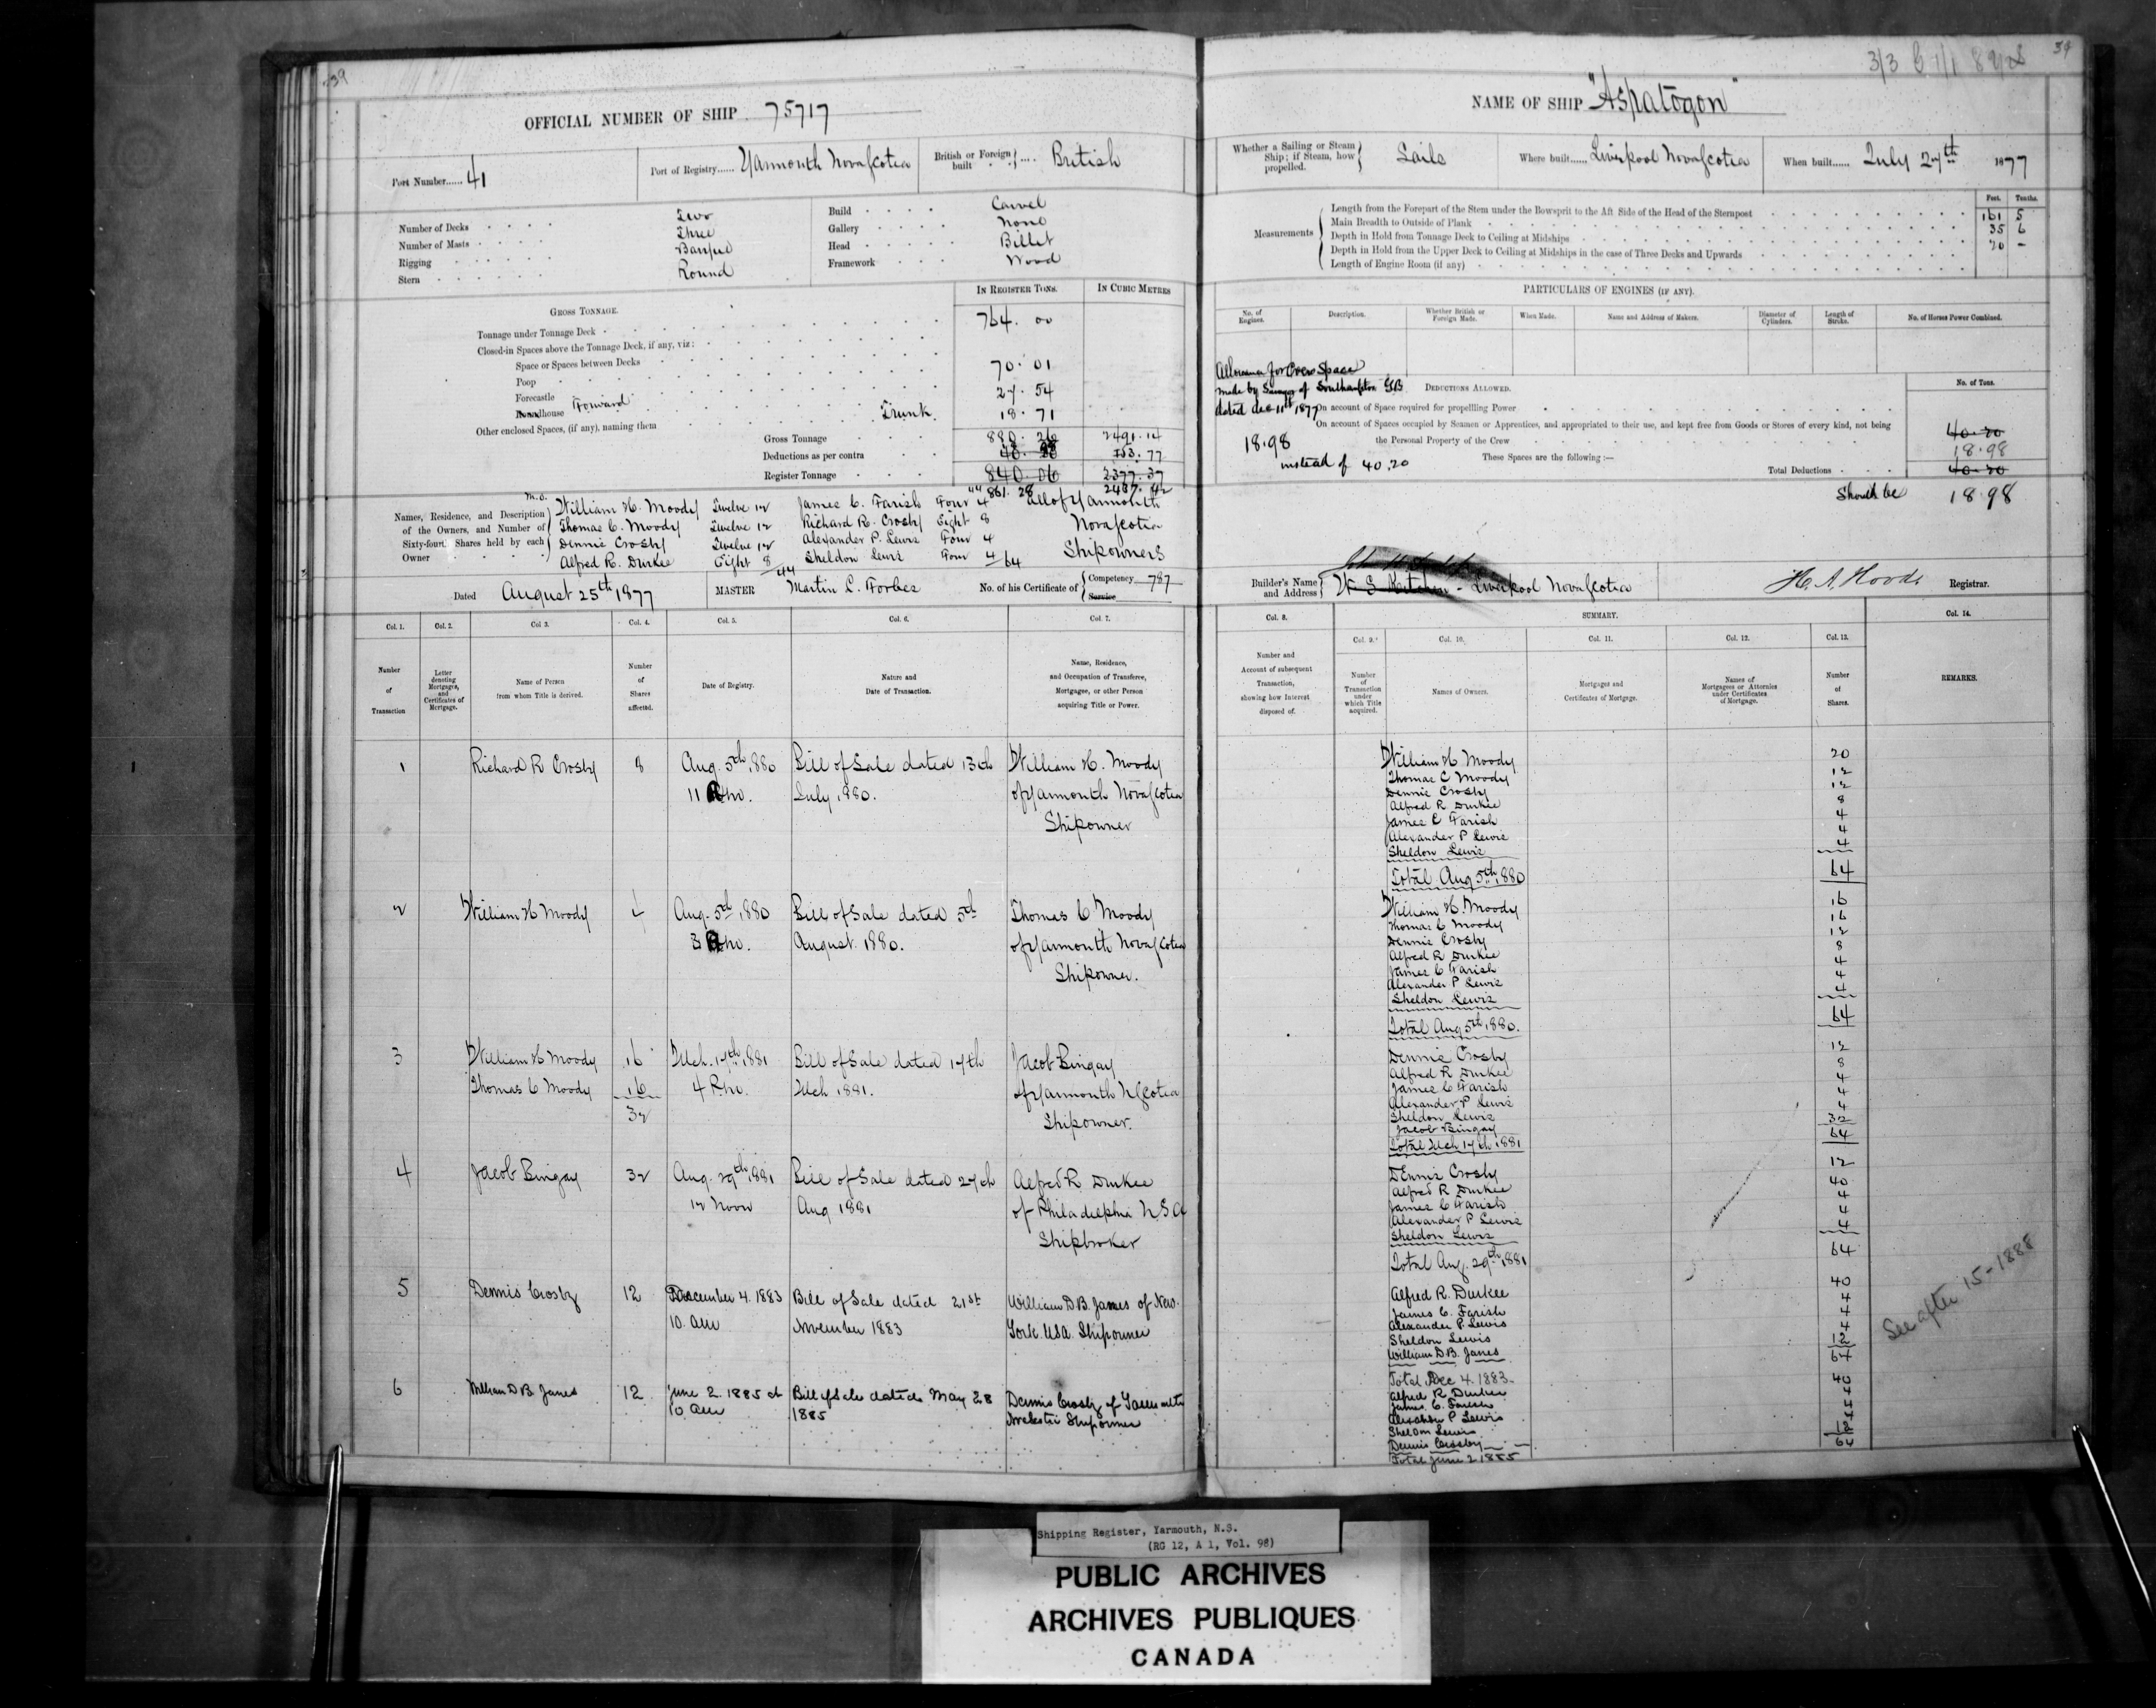 39
OFFICIAL NUMBER OF SHIP 75717
Port Number...... 41
Port of Registry...... Yarmouth Nova Scotia
British or Foreign built .... British
Number of Decks Two
Number of Masts Three
Rigging Barque
Stern Round
Build Carvel
Gallery None
Head Billet
Framework Wood
IN REGISTER TONS.
IN CUBIC METRES
GROSS TONNAGE.
Tonnage under Tonnage Deck 764.00
Closed-in Spaces above the Tonnage Deck, if any, viz:
Space or Spaces between Decks
Poop 70.01
Forecastle 27.54
Roundhouse Forward
Other enclosed Spaces, (if any), naming them Trunk. 18.71
Gross Tonnage 880.26 2491.14
Deductions as per contra 18.98 40.20 153.77
Register Tonnage 840.06 2377.37
861.28 2437.42
Names, Residence, and Description of the Owners, and Number of Sixty-fourth Shares held by each Owner
M.O.
William H. Moody Twelve 12 James C. Farish Four 4 all of Yarmouth
Thomas C. Moody Twelve 12 Richard R. Crosby Eight 8 Nova Scotia
Dennis Crosby Twelve 12 Alexander P. Lewis Four 4
Alfred R. Durkee Eight 8 Sheldon Lewis Four 4 Shipowners
44 64
Dated August 25th 1877
MASTER Martin L. Forbes
No. of his Certificate of Competency 787
Service
Col. 1. Col. 2. Col 3. Col. 4. Col. 5. Col. 6. Col. 7.
Number of Transaction
Letter denoting Mortgages, and Certificates of Mortgage.
Name of Person from whom Title is derived.
Number of Shares affected.
Date of Registry.
Nature and Date of Transaction.
Name, Residence, and Occupation of Transferee, Mortgagee, or other Person acquiring Title or Power.
1 Richard R Crosby 8 Aug. 5th 1880 Bill of Sale dated 13th William H. Moody
11 July 1880. of Yarmouth Nova Scotia
Shipowner
2 William H Moody 4 Aug. 5th 1880 Bill of Sale dated 5th Thomas C Moody
3 August 1880. of Yarmouth Nova Scotia
Shipowner.
3 William H Moody 16 Mch. 17th 1881 Bill of Sale dated 17th Jacob Bingay
Thomas C Moody 16 4 P.m. Mch 1881. of Yarmouth N Scotia
32 Shipowner.
4 Jacob Bingay 32 Aug. 29th 1881 Bill of Sale dated 27th Alfred R Durkee
12 Noon Aug 1881 of Philadelphia U.S.A
Shipbroker
5 Dennis Crosby 12 December 4. 1883 Bill of Sale dated 21st William D.B. Janes of New
10. AM November 1883 York. USA. Shipowner
6 William D B Janes 12 June 2. 1885 at Bill of Sale dated May 28 Dennis Crosby of Yarmouth
10. AM 1885 Nova Scotia Shipowner
39
NAME OF SHIP "Aspatogon"
Whether a Sailing or Steam Ship; if Steam, how propelled. Sails
Where built...... Liverpool Nova Scotia
When built...... July 27th 1877
Measurements
Feet. Tenths.
Length from the Forepart of the Stem under the Bowsprit to the Aft Side of the Head of the Sternpost 161 5
Main Breadth to Outside of Plank 35 6
Depth in Hold from Tonnage Deck to Ceiling at Midships 20 -
Depth in Hold from the Upper Deck to Ceiling at Midships in the case of Three Decks and Upwards
Length of Engine Room (if any)
PARTICULARS OF ENGINES (IF ANY).
No. of Engines.
Description.
Whether British or Foreign Made.
When Made.
Name and Address of Makers.
Diameter of Cylinders.
Length of Stroke.
No. of Horses Power Combined.
Allowance for Crew Space
made by Surveyor of Southampton GB
dated dec 11th 1877
18.98
instead of 40.20
DEDUCTIONS ALLOWED.
No. of Tons.
On account of Space required for propelling Power
On account of Spaces occupied by Seamen or Apprentices, and appropriated to their use, and kept free from Goods or Stores of every kind, not being
the Personal Property of the Crew 40.20
These Spaces are the following:— 18.98
Total Deductions 40.20
Should be 18.98
Builder's Name and Address Liverpool Nova Scotia
H. A. Hood Registrar.
Col. 8. SUMMARY. Col. 14.
Col. 9. Col. 10. Col. 11. Col. 12. Col. 13.
Number and Account of subsequent Transaction, showing how Interest disposed of.
Number of Transaction under which Title acquired.
Names of Owners.
Mortgages and Certificates of Mortgage.
Names of Mortgagees or Attornies under Certificates of Mortgage.
Number of Shares.
REMARKS.
William H Moody 20
Thomas C Moody 12
Dennis Crosby 12
Alfred R Durkee 8
James C Farish 4
Alexander P Lewis 4
Sheldon Lewis 4
Total Aug 5th 1880 64
William H. Moody 16
Thomas C Moody 16
Dennis Crosby 12
Alfred R Durkee 8
James C Farish 4
Alexander P Lewis 4
Sheldon Lewis 4
Total Aug 5th 1880. 64
Dennis Crosby 12
Alfred R Durkee 8
James C Farish 4
Alexander P Lewis 4
Sheldon Lewis 4
Jacob Bingay 32
Total Mch 17th 1881 64
Dennis Crosby 12
Alfred R Durkee 40
James C Farish 4
Alexander P Lewis 4
Sheldon Lewis 4
Total Aug. 29th 1881 64
Alfred R. Durkee 40
James C. Farish 4
Alexander P. Lewis 4
Sheldon Lewis 4
William D.B. Janes 12
Total Dec 4. 1883. 64
Alfred R Durkee 40
James. C. Farish 4
Alexander P Lewis 4
Sheldon Lewis 4
Dennis Crosby 12
Total June 2 1885 64
See after 15-1888
Shipping Register, Yarmouth, N.S.
(RG 12, A 1, Vol. 98)
PUBLIC ARCHIVES
ARCHIVES PUBLIQUES
CANADA